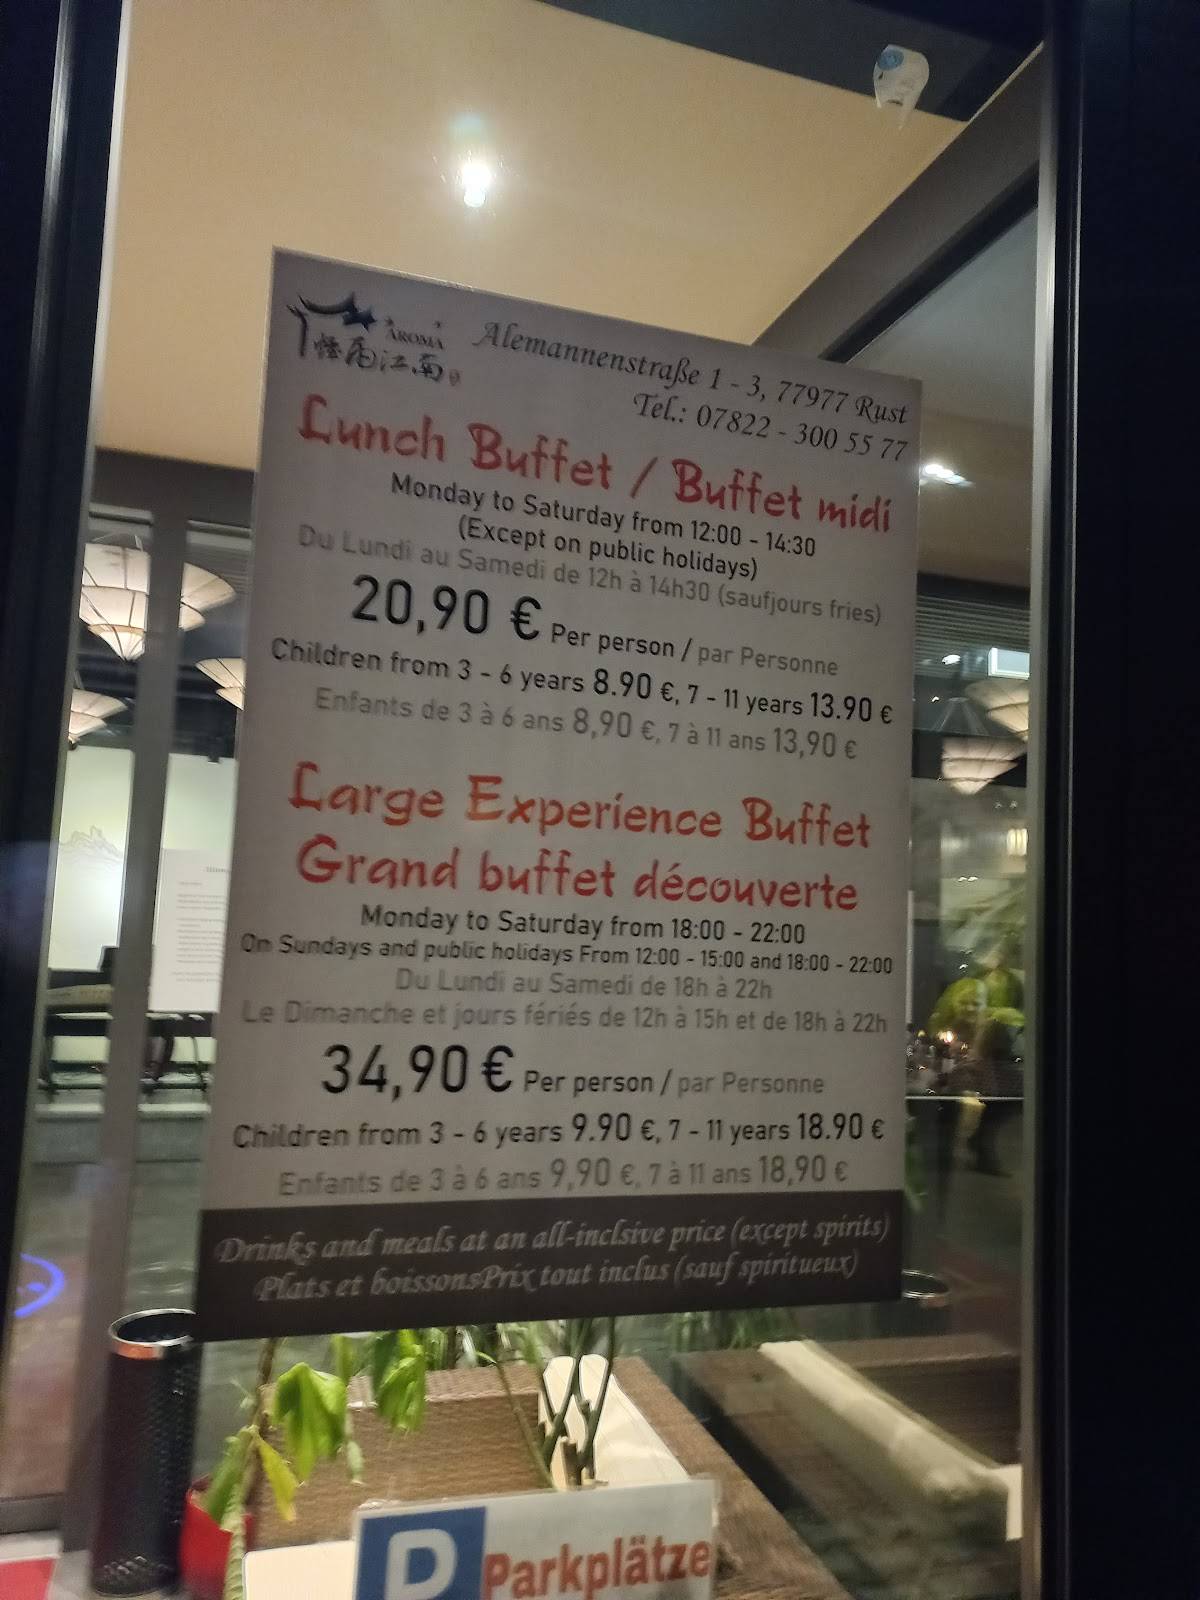 AROMA
Alemannenstraße 1 - 3, 77977 Rust
Tel.: 07822 - 300 55 77
Lunch Buffet / Buffet midi
Monday to Saturday from 12:00 - 14:30
(Except on public holidays)
Du Lundi au Samedi de 12h à 14h30 (saufjours fries)
20,90 € Per person / par Personne
Children from 3 - 6 years 8.90 €, 7 - 11 years 13.90 €
Enfants de 3 à 6 ans 8,90 €, 7 à 11 ans 13,90 €
Large Experience Buffet
Grand buffet découverte
Monday to Saturday from 18:00 - 22:00
On Sundays and public holidays From 12:00 - 15:00 and 18:00 - 22:00
Du Lundi au Samedi de 18h à 22h
Le Dimanche et jours fériés de 12h à 15h et de 18h à 22h
34,90 € Per person / par Personne
Children from 3 - 6 years 9.90 €, 7 - 11 years 18.90 €
Enfants de 3 à 6 ans 9,90 €, 7 à 11 ans 18,90 €
Drinks and meals at an all-inclsive price (except spirits)
Plats et boissonsPrix tout inclus (sauf spiritueux)
P Parkplätze